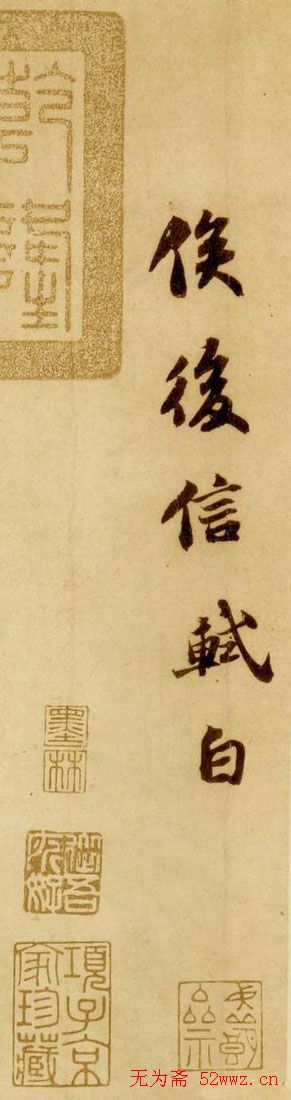 俟後信軾白
乾隆
墨林
項子京
家珍藏
无为斋 52wwz.cn